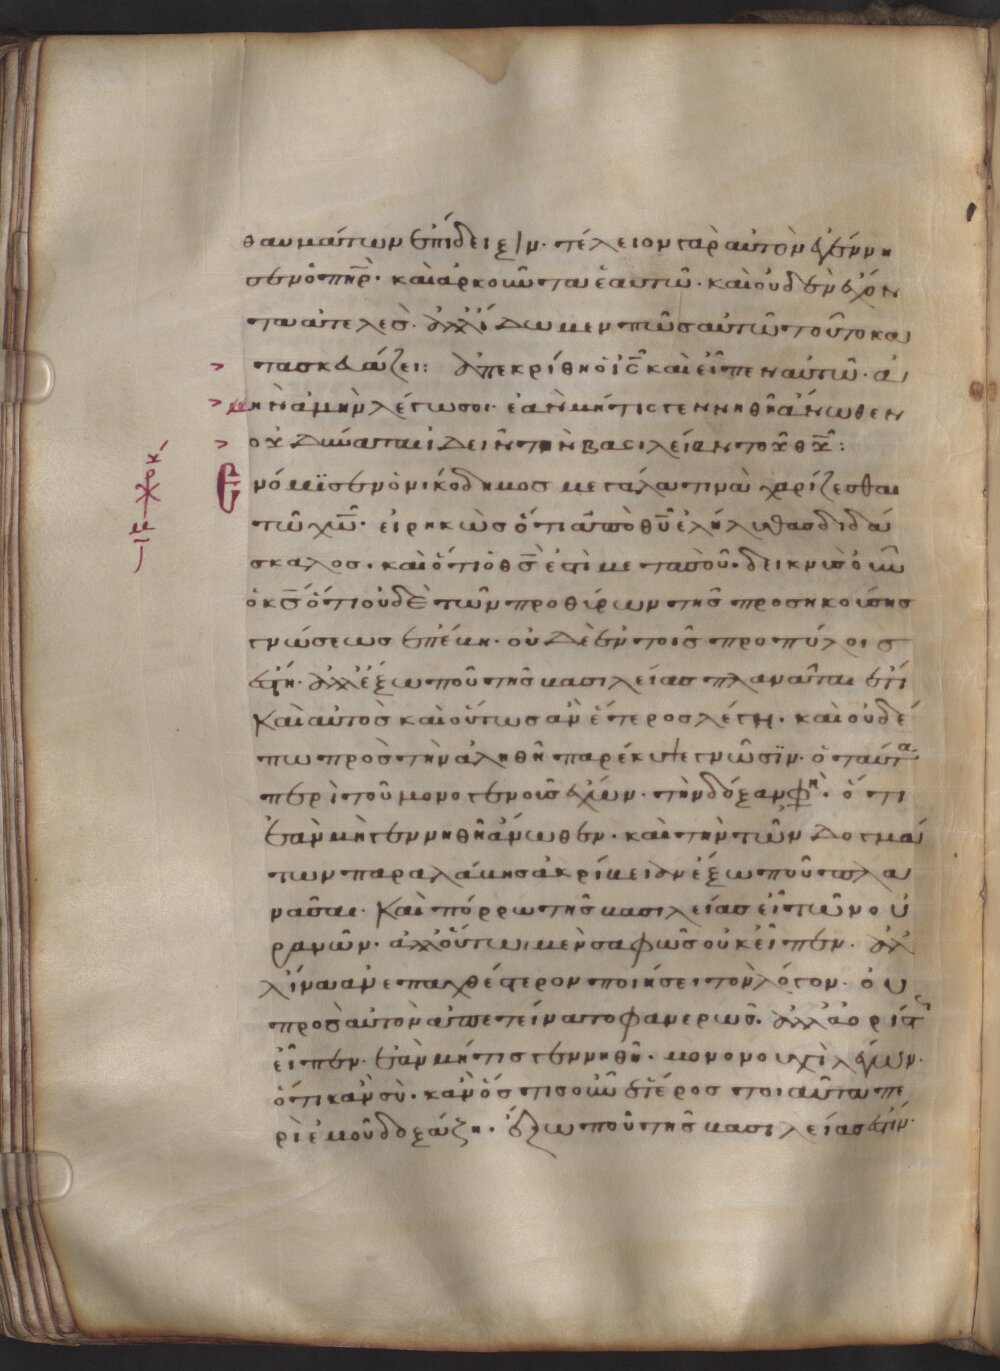 θαυμάτων ἐπίδειξιν· τέλειον γὰρ αὐτὸν ἐγέννη
σεν ὁ πηρ̅· καὶ ἀρκοῦντα ἑαυτῶ· καὶ οὐδὲν ἔχον
τα ἀτελὲσ. ἀλλ ἴδωμεν πῶσ αὐτῶ τοῦτο κα
τασκευάζει: ἀπεκρίθη ὁ ισ̅ καὶ εἶπεν αὐτῶ· ἀ
μὴν ἀμὴν λέγω σοι· ἐὰν μή τις γεννηθῆ ἄνωθεν
οὐ δύναται ἰδεῖν τὴν βασιλείαν τοῦ θυ̅:
Ενόμϊσεν ὁ νικόδημοσ μεγάλα τινὰ χαρίζεσθαι
τῶ χω̅· εἰρηκὼσ ὅτι ἀπὸ θυ̅ ἐλήλυθασ διδά
σκαλοσ· καὶ ὅτι ὁ θσ̅ ἐστὶ μετασοῦ· δεικνὺσ οὖν
ὁ κσ̅ ὅτι οὐδὲ τῶν προθύρων τῆσ προσηκούσησ
γνώσεωσ ἐπέβη· οὐδὲ ἐν τοῖσ προπύλοισ
ἐστὶν· ἀλλ ἔξω που τῆσ βασιλείασ πλανᾶται ἔτι
καὶ αὐτὸσ καὶ οὕτωσ ἂν ἕτεροσ λέγη· καὶ οὐδέ
πω πρὸσ τὴν ἀληθῆ παρέκυψε γνῶσϊν· ὁ ταῦτα
περὶ τοῦ μονογενοῦσ ἔχων· τὴν δόξαν φη· ὅτι
ἐὰν μὴ γεννηθῆ ἄνωθεν· καὶ τὴν τῶν δογμά
των παραλάβησ ἀκρίβειαν ἔξω που πλα
νᾶσαι· καὶ πόρρω τῆσ βασιλείασ εἶ τῶν οὐ
ρανῶν· ἀλλ οὕτω μὲν σαφῶσ οὐκ εἶπεν· ἀλ
λ ἵνα ἀνεπαχθέστερον ποιήσει τὸν λόγον· οὐ
πρὸσ αὐτὸν ἀπετείνατο φανερῶσ· ἀλλὰ ἀορίστ
εἶπεν· ἐὰν μή τισ γεννηθῆ· μονονουχὶ λέγων·
ὅτι κἂν σὺ· κἂν ὅστισοῦν ἕτεροσ τοιαῦτα πε
ρὶ ἐμοῦ δοξάζη· ἔξω που τῆσ βασιλείασ ἐστίν·